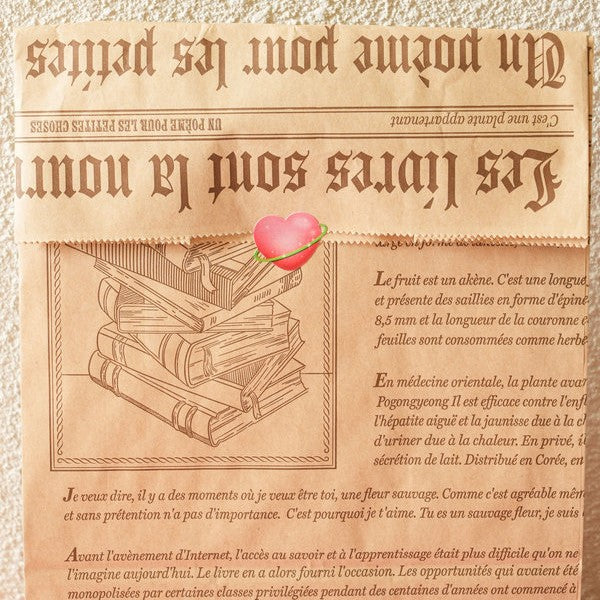 Un poème pour les petites
C'est une plante appartenant
UN POÈME POUR LES PETITES CHOSES
Les livres sont la nourr
Le fruit est un akène. C'est une longue
et présente des saillies en forme d'épine
8,5 mm et la longueur de la couronne e
feuilles sont consommées comme herbe
En médecine orientale, la plante avar
Pogongyeong Il est efficace contre l'enfl
l'hépatite aiguë et la jaunisse due à la c
d'uriner due à la chaleur. En privé, il
sécrétion de lait. Distribué en Corée, en
Je veux dire, il y a des moments où je veux être toi, une fleur sauvage. Comme c'est agréable mêm
et sans prétention n'a pas d'importance. C'est pourquoi je t'aime. Tu es un sauvage fleur, je suis
Avant l'avènement d'Internet, l'accès au savoir et à l'apprentissage était plus difficile qu'on ne
l'imagine aujourd'hui. Le livre en a alors fourni l'occasion. Les opportunités qui avaient été
monopolisées par certaines classes privilégiées pendant des centaines d'années ont commencé à